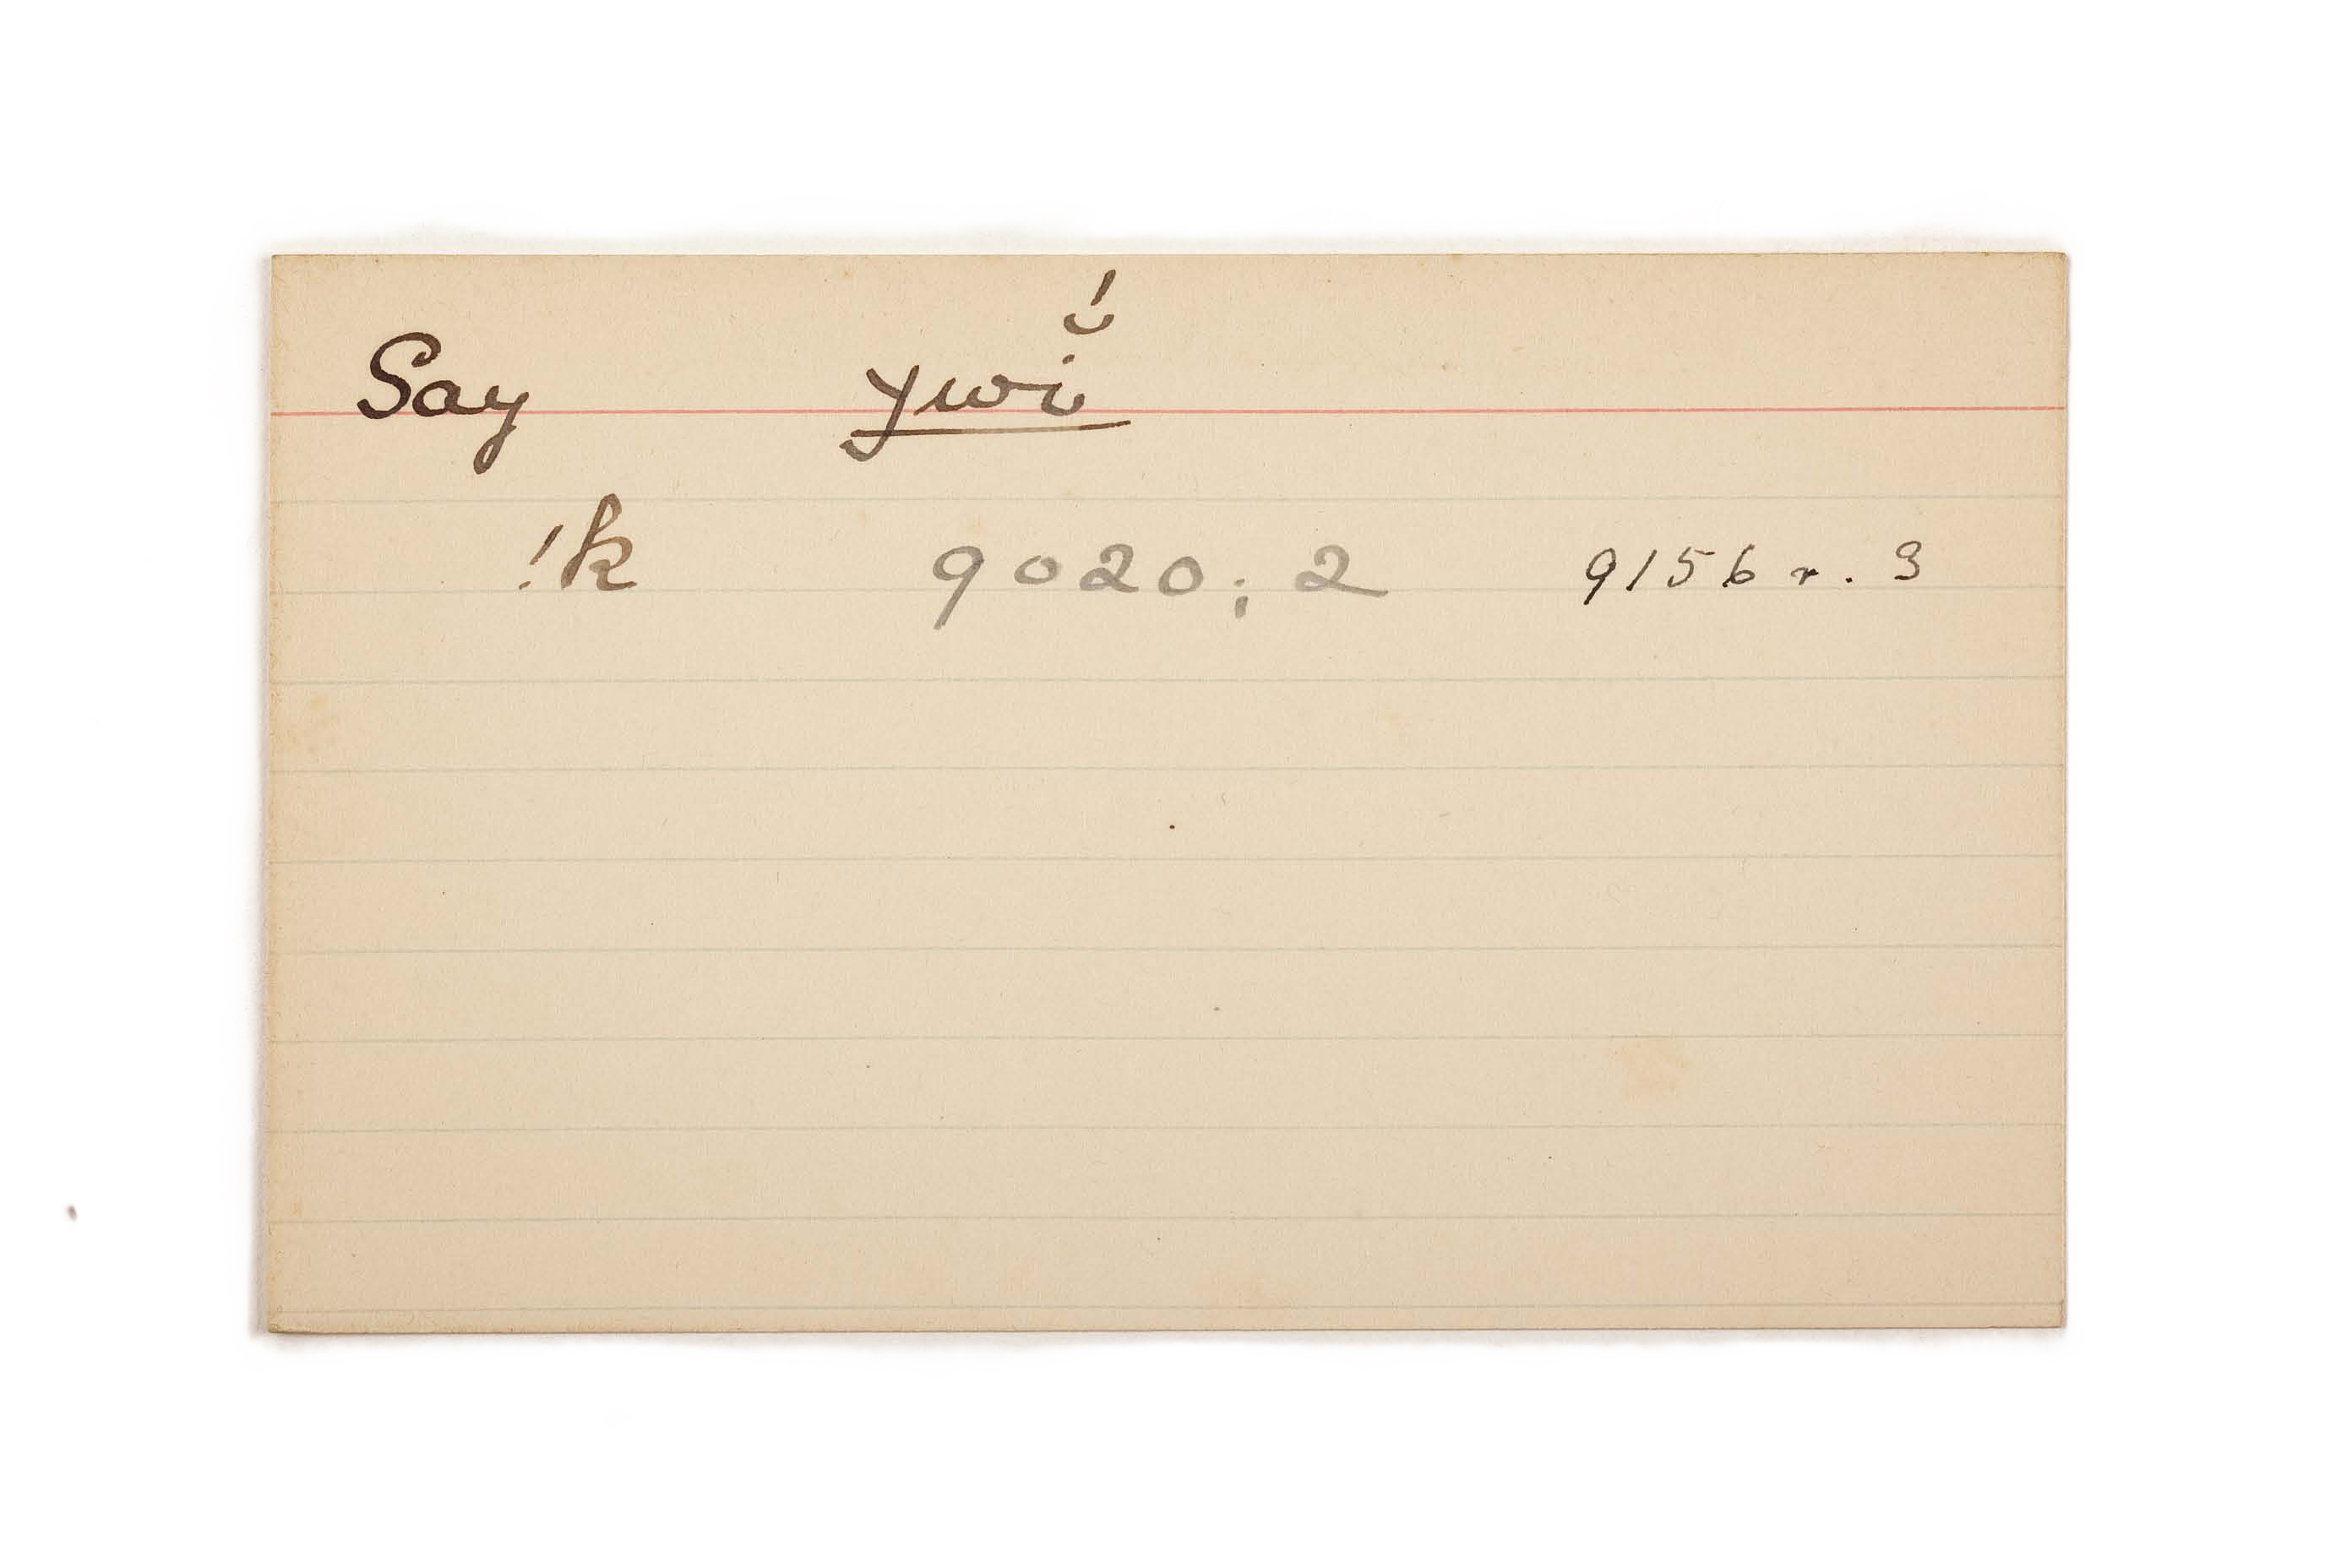 Say ywĭ́
!k 9020; 2 9156 r. 3